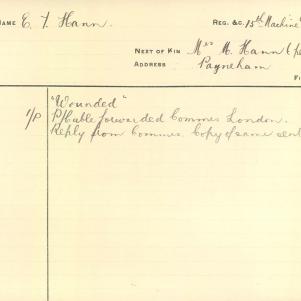 NAME E. F. Hann
REG. &C. 15th Machine
NEXT OF KIN Mrs M. Hann
ADDRESS Payneham
"Wounded"
P/P Cable forwarded Commes London.
Reply from Commes. Copy of same sent